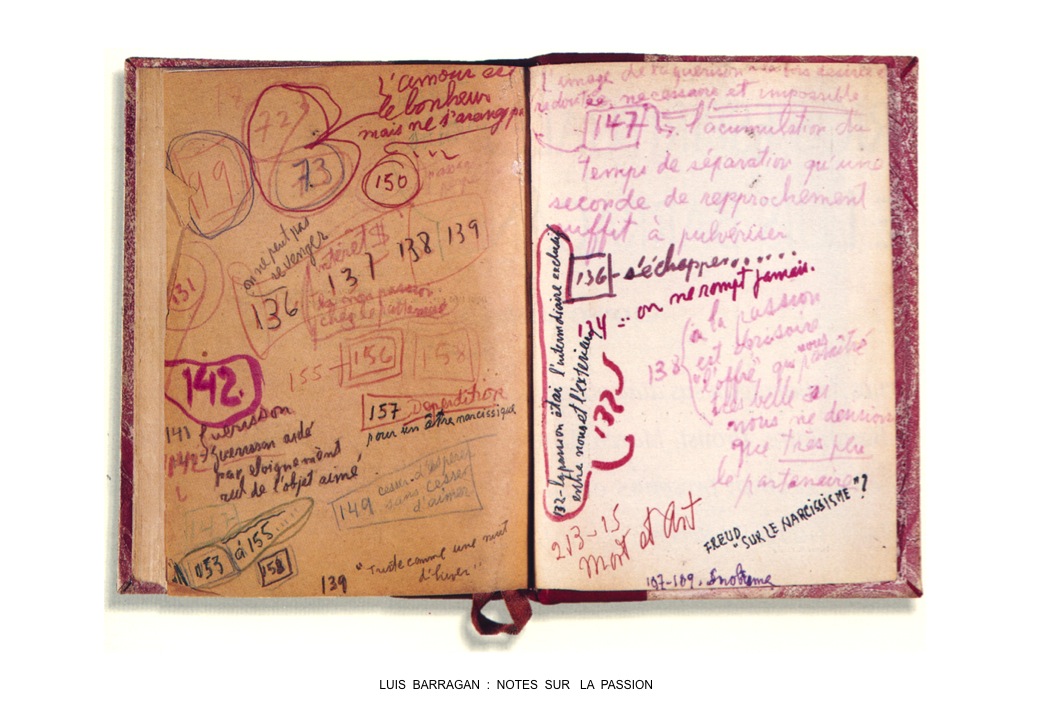 l'amour est
le bonheur
mais ne s'arange pas
72
73
99
150
on ne peut pas
se venger
intéret $
136
137
138
139
131
ma passion
chez le partenaire
155
156
158
142.
157 Dependition
pour un être narcissique
141 guerison
142 guerison aidé
par eloignement
reel de l'objet aimé
149 cesser d'esperer
sans cesser
d'aimer
153 à 155
158
139
"Triste comme une nuit
d'hiver"
l'image de la guerison à la fois désirée et
redoutée, necessaire et impossible
147
l'acumulation du
temps de séparation qu'une
seconde de rapprochement
suffit à pulvériser
136 - s'échapper......
134 = on ne rompt jamais.
132 - la passion était l'intermédiaire exclusif
entre nous et l'exterieur
132
138
a la passion
est
l'offre qui
plus belle
nous ne devions
que très peu
le partenaire
213-15
Mort et Art
FREUD "SUR LE NARCISSISME"?
107-109.
LUIS BARRAGAN : NOTES SUR LA PASSION